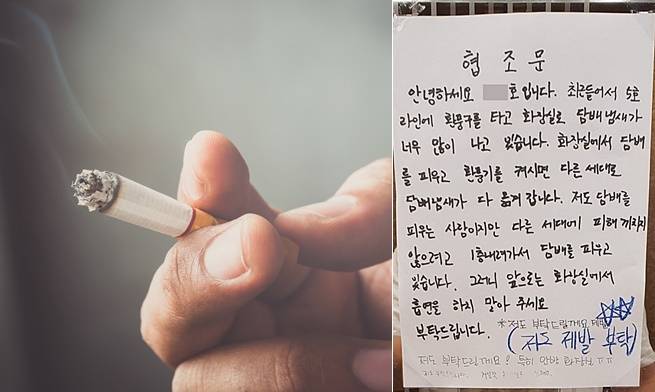 협 조 문
안녕하세요 호입니다. 최근들어서 5호
라인에 환풍구를 타고 화장실로 담배냄새가
너무 많이 나고 있습니다. 화장실에서 담배
를 피우고 환풍기를 켜시면 다른 세대로
담배냄새가 다 옮겨 갑니다. 저도 담배를
피우는 사람이지만 다른 세대에 피해 끼치지
않으려고 1층내려가서 담배를 피우고
있습니다. 그러니 앞으로는 화장실에서
흡연을 하지 말아 주세요
부탁드립니다.
* 저도 부탁드립니다 제발
(저도 제발 부탁)
저도 부탁드릴게요! 특히 안방 화장실 ㅠㅠ